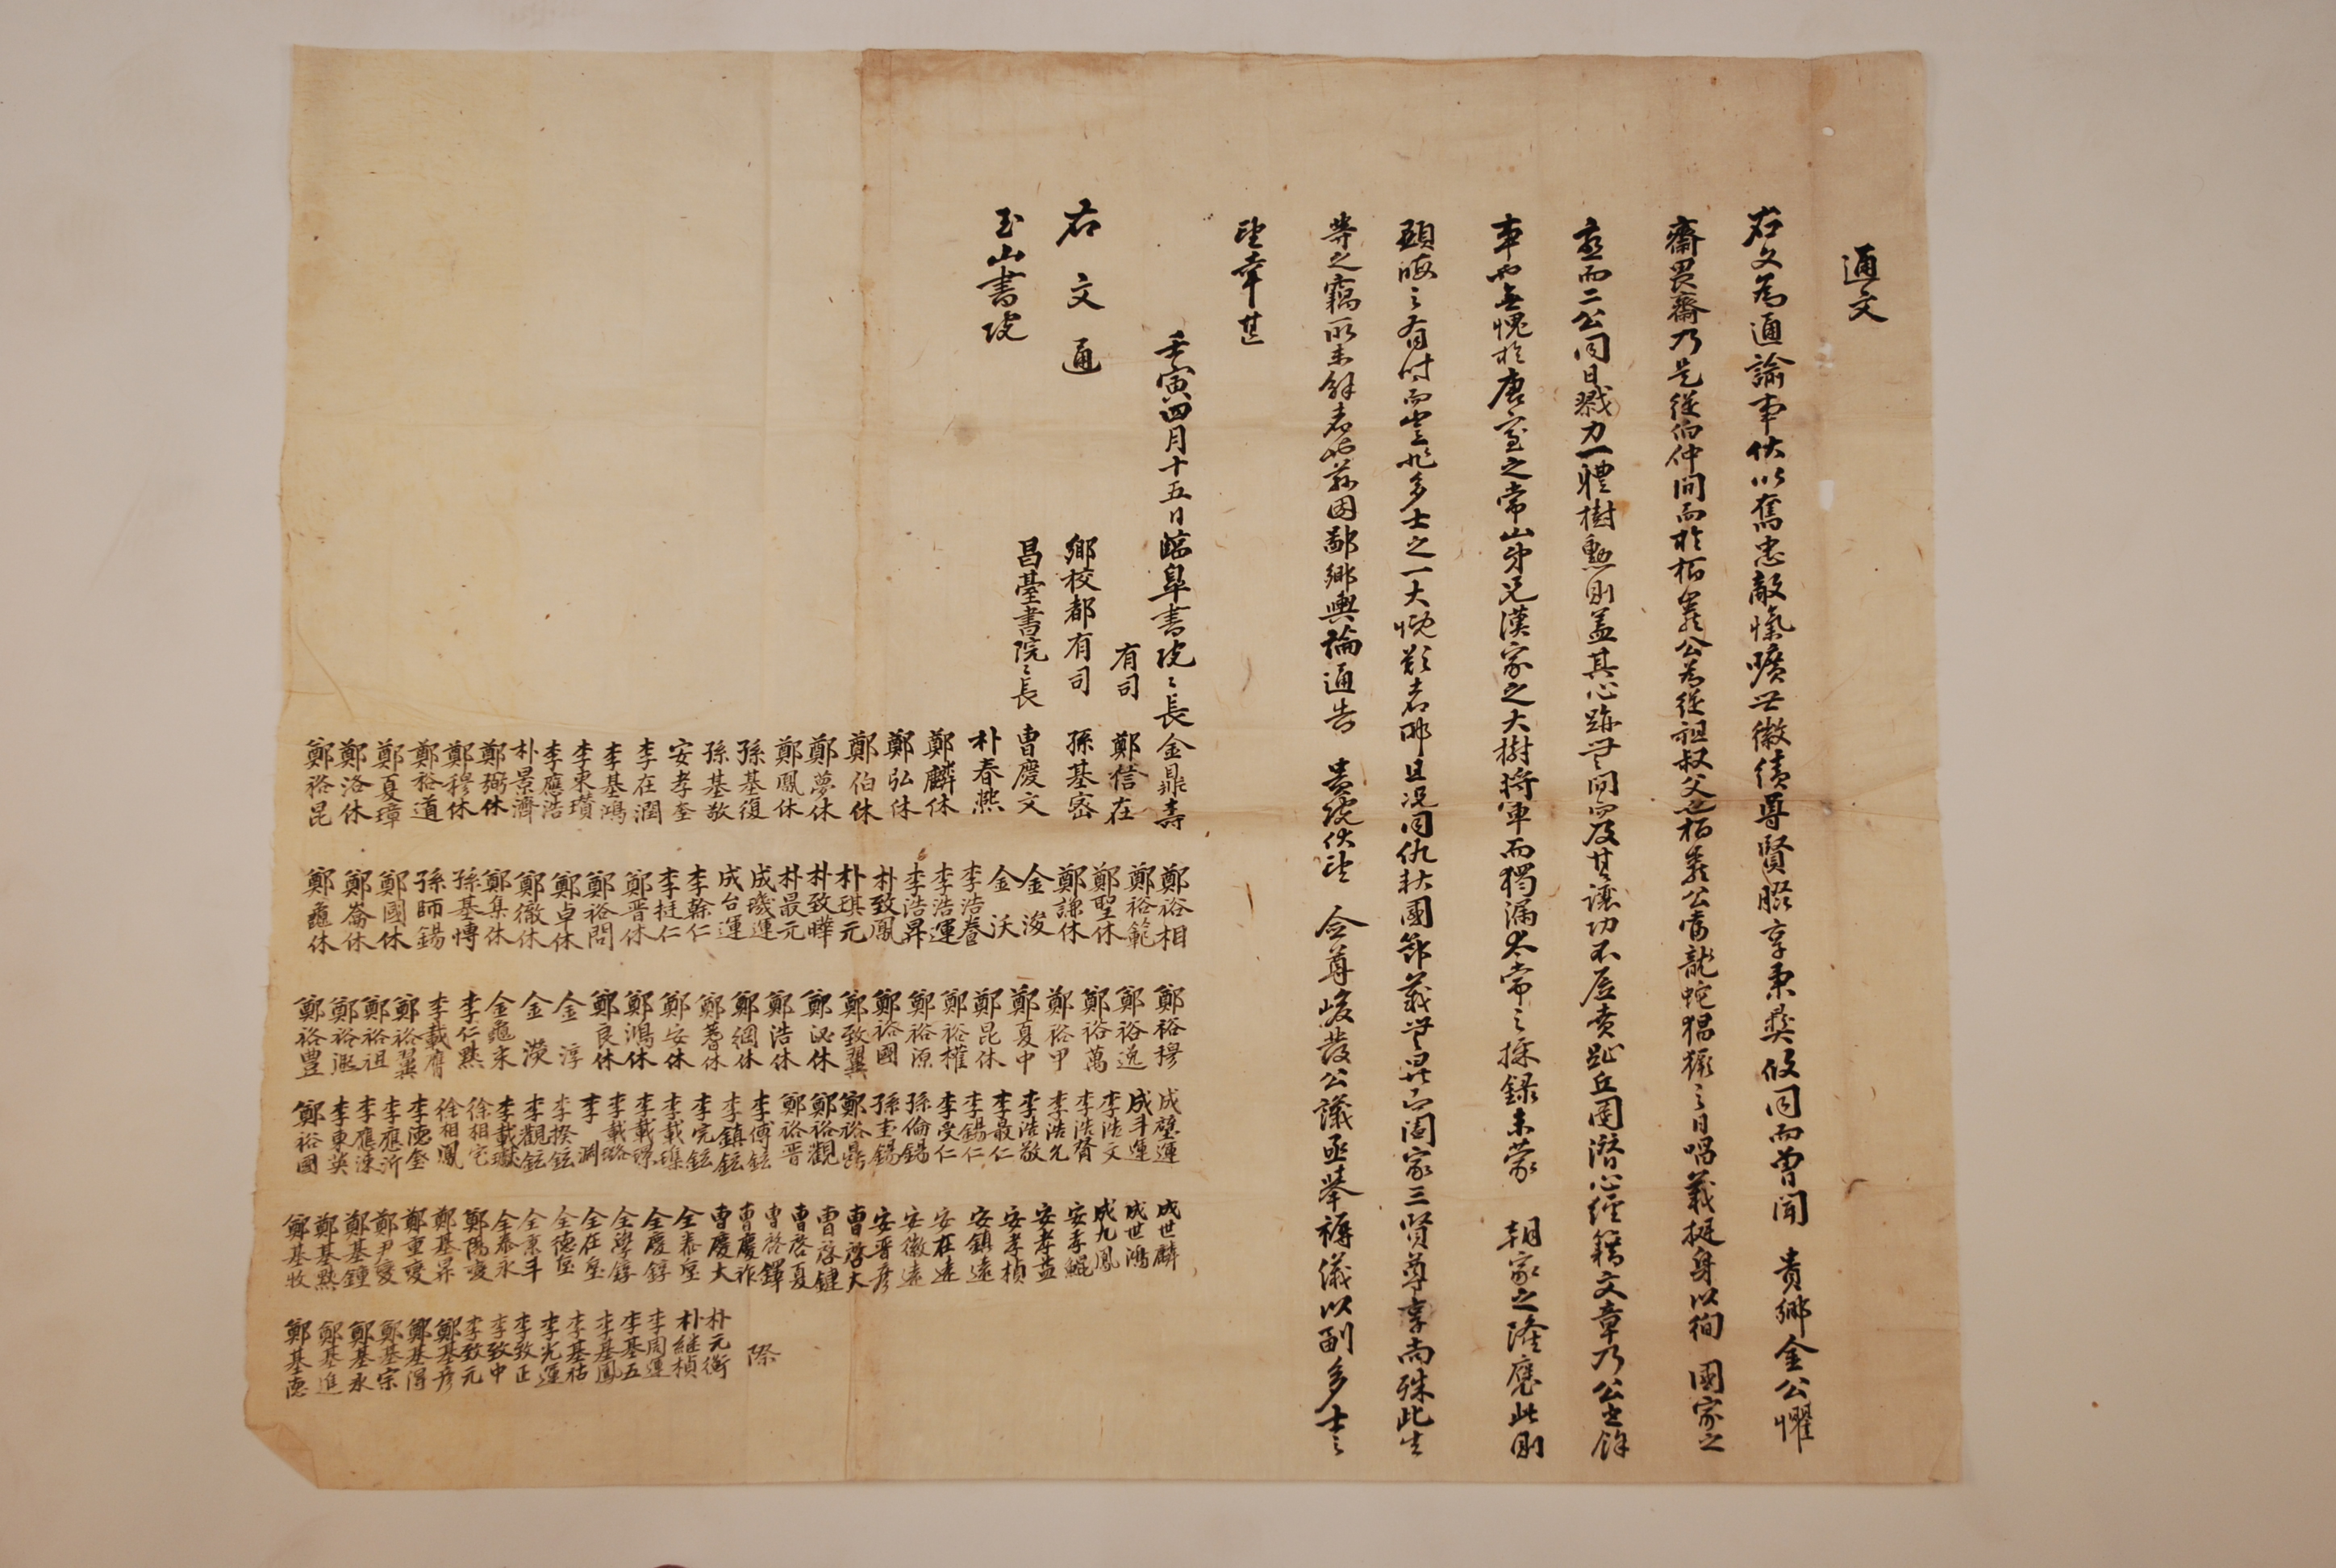 通文
右文爲通諭事伏以奮忠敵愾曠世徽績尊賢腏享秉彛攸同而曾聞 貴鄕金公懼
齋畏齋乃是從伯仲間而於栢岩公爲從祖叔父也栢岩公當龍蛇猖獗之日唱義挺身以徇 國家之
急而二公同日戮力一體樹勲則盖其心跡無間而及其讓功不居賁趾丘園潛心經籍文章乃公之餘
事也無愧於唐室之常山弟兄漢家之大樹將軍而獨漏太常之採錄未蒙 朝家之隆褒此則
顯晦之有時而豈非多士之一大慨歎者耶且况同仇扶國節義無異而家三賢尊享尚殊此生
等之竊所未解者也玆因鄙鄕輿論通告 貴院伏望 僉尊峻發公議亟擧褥儀以副多士之
望幸甚
壬寅四月十五日臨皐書院〻長金鼎壽
有司 鄭信在
鄕校都有司 孫基密
昌臺書院〻長 曺慶文
右文通
玉山書院
朴春㷼
鄭麟休
鄭弘休
鄭伯休
鄭夢休
鄭鳳休
孫基復
孫基敬
安孝奎
李在潤
李基鴻
李東瓚
李應浩
朴景濟
鄭弼休
鄭穆休
鄭裕道
鄭夏璋
鄭洛休
鄭裕昆
鄭裕相
鄭裕範
鄭聖休
鄭謙休
金浚
金沃
李浩眷
李浩運
李浩昇
朴致鳳
朴琪元
朴致曄
朴最元
成璣運
成台運
李幹仁
李挺仁
鄭晋休
鄭裕問
鄭卓休
鄭徹休
鄭集休
孫基博
孫師錫
鄭國休
鄭崙休
鄭龜休
鄭裕穆
鄭裕逸
鄭裕萬
鄭裕甲
鄭夏中
鄭昆休
鄭裕權
鄭裕源
鄭裕國
鄭致翼
鄭泌休
鄭浩休
鄭綱休
鄭蓍休
鄭安休
鄭鴻休
鄭良休
金淳
金濙
金龜來
李仁㸃
李載膺
鄭裕翼
鄭裕祖
鄭裕凞
鄭裕豊
成璧運
成斗運
李浩文
李浩膂
李浩允
李浩敬
李最仁
李錫仁
李受仁
孫倫錫
孫圭錫
鄭裕鼎
鄭裕觀
鄭裕晋
李傅鉉
李鎭鉉
李完鉉
李載璞
李載
李載璐
李淵
李揆鉉
李觀鉉
李載瓛
徐相宅
徐相鳳
李德奎
李應沂
李應涑
李東英
鄭裕國
成世麟
成世鴻
成九鳳
安孝鯤
安孝益
安孝楨
安鎭遠
安在遠
安徽遠
安晋彦
曺啓大
曺啓鍵
曺啓夏
曺啓鐸
曺慶祚
曺慶大
全泰壆
全慶錞
全學錞
全在壆
全德壆
全秉斗
全泰永
鄭陽燮
鄭基昇
鄭重燮
鄭尹燮
鄭基鍾
鄭基㸃
鄭基牧
朴元衡
朴継楨
李周運
李基五
李基鳳
李基祜
李光運
李致正
李致中
李致元
鄭基彦
鄭基得
鄭基宗
鄭基永
鄭基進
鄭基德
際